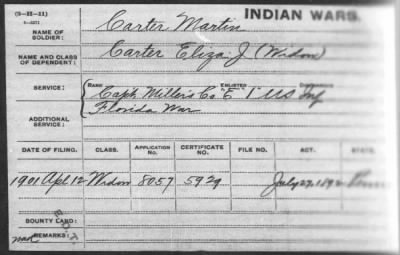 (3-H-11)
3-3271
INDIAN WARS.
NAME OF SOLDIER: Carter Martin
NAME AND CLASS OF DEPENDENT: Carter Eliza J (Widow)
SERVICE: RANK ENLISTED DISCHARGED
Capt. Miller's Co "E" 1" US Inf
Florida War
ADDITIONAL SERVICE:
DATE OF FILING. CLASS. APPLICATION No. CERTIFICATE No. FILE NO. ACT. STATE.
1901 Apl 12 Widow 8057 5929 July 27, 1892
BOUNTY LAND:
REMARKS: